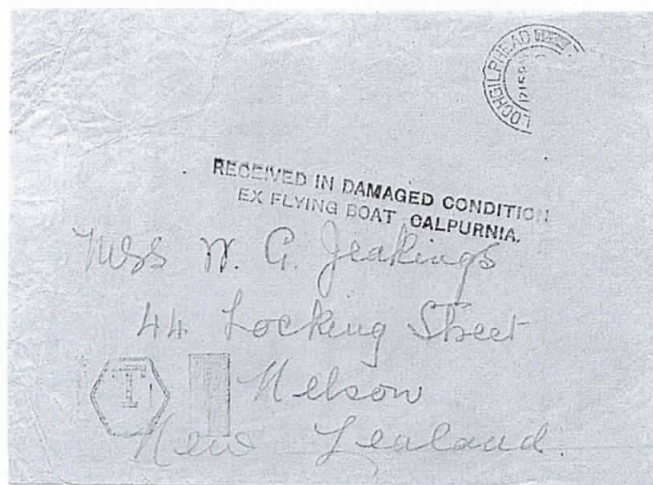 LOCHGILPHEAD
RECEIVED IN DAMAGED CONDITION
EX FLYING BOAT CALPURNIA.
Miss N. G. Jeakings
44 Locking Street
T
Nelson
New Zealand